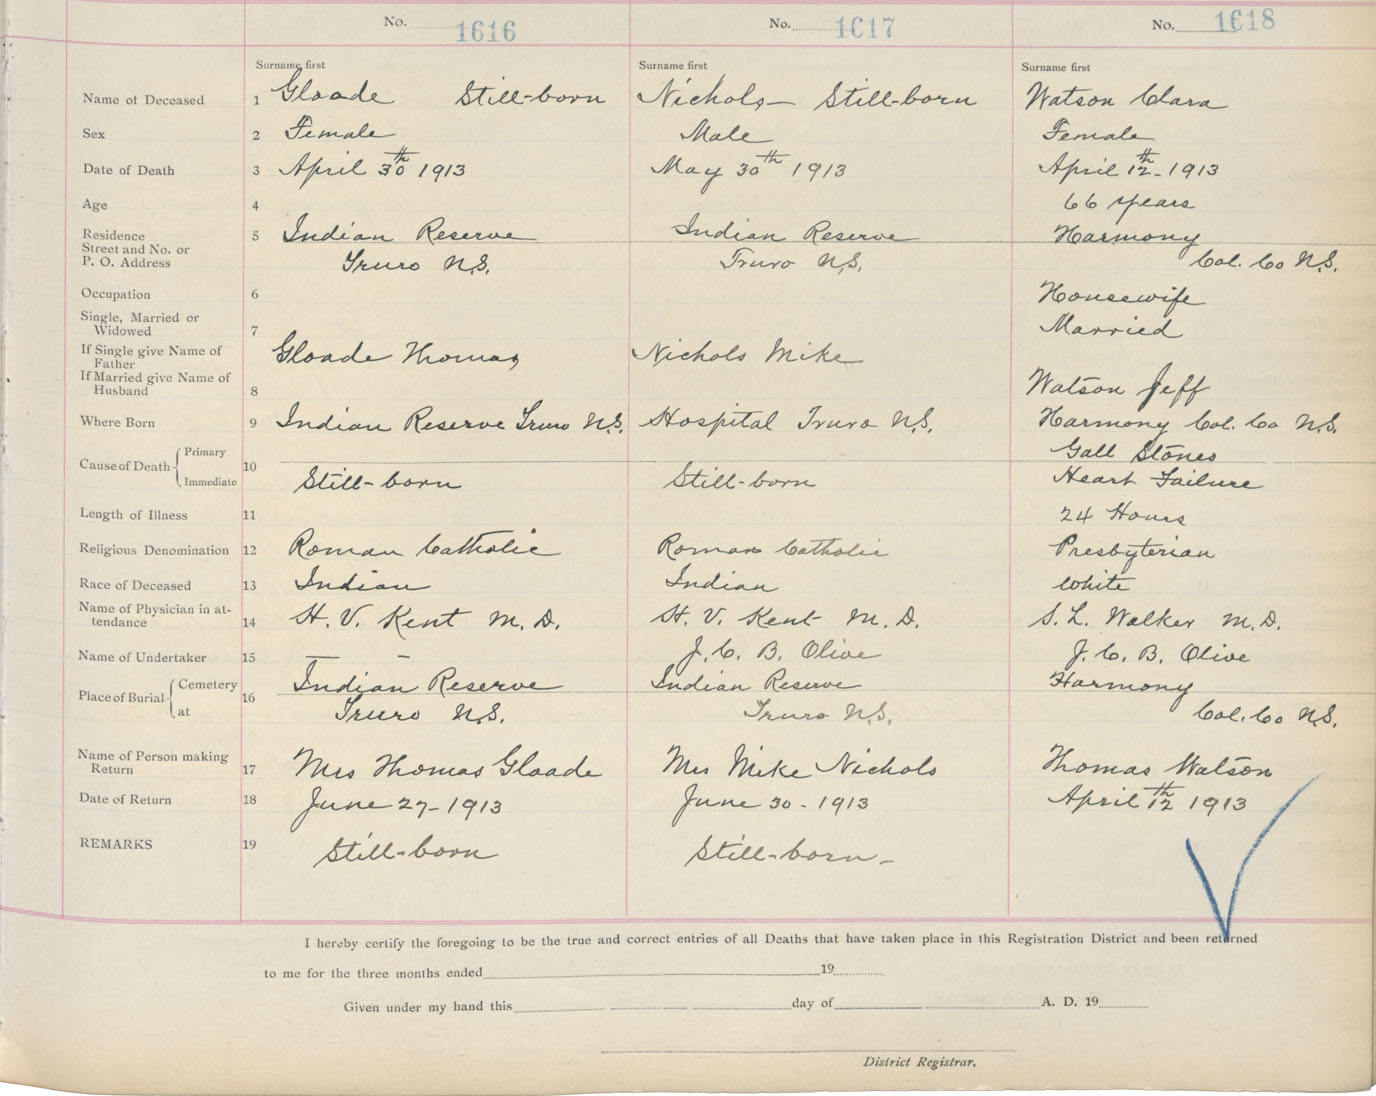 No. 1616 No. 1617 No. 1618
Surname first Surname first Surname first
Name of Deceased 1 Gloade Still-born Nichols Still-born Watson Clara
Sex 2 Female Male Female
Date of Death 3 April 30th 1913 May 30th 1913 April 12th 1913
Age 4 66 years
Residence 5 Indian Reserve Indian Reserve Harmony
Street and No. or
P. O. Address Truro N.S. Truro N.S. Col. Co N.S.
Occupation 6 Housewife
Single, Married or
Widowed 7 Married
If Single give Name of
Father Gloade Thomas Nichols Mike
If Married give Name of
Husband 8 Watson Jeff
Where Born 9 Indian Reserve Truro N.S. Hospital Truro N.S. Harmony Col. Co N.S.
Cause of Death Primary Gall Stones
10
Immediate Still-born Still-born Heart Failure
Length of Illness 11 24 Hours
Religious Denomination 12 Roman Catholic Roman Catholic Presbyterian
Race of Deceased 13 Indian Indian White
Name of Physician in at-
tendance 14 H. V. Kent M. D. H. V. Kent M. D. S. L. Walker M. D.
Name of Undertaker 15 — — J. C. B. Olive J. C. B. Olive
Place of Burial Cemetery 16 Indian Reserve Indian Reserve Harmony
at Truro N.S. Truro N.S. Col. Co N.S.
Name of Person making
Return 17 Mrs Thomas Gloade Mrs Mike Nichols Thomas Watson
Date of Return 18 June 27-1913 June 30-1913 April 12th 1913
REMARKS 19 Still-born Still-born-
I hereby certify the foregoing to be the true and correct entries of all Deaths that have taken place in this Registration District and been returned
to me for the three months ended 19
Given under my hand this day of A. D. 19
District Registrar.